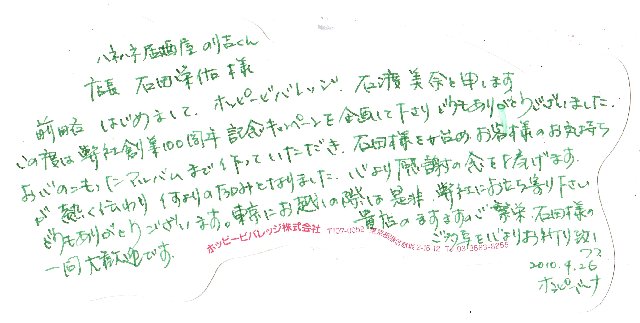 ハネハネ居酒屋 のり吉くん
店長 石田栄佑様
前略 はじめまして、ホッピービバレッジ、石渡美奈と申します
この度は弊社創業100周年記念キャンペーンを企画して下さりどうもありがとうございました。
石田様を始め お客様のお気持ち
おじのこもったアルバムまで作っていただき、
が熱く伝わり 何よりの励みとなりました。心より感謝の念を上げます。
どうもありがとうございます。東京にお越しの際は是非弊社にお立ち寄り下さい
一同大歓迎です。
貴店のますますのご繁栄 石田様の
ご多幸を心よりお祈り致し
つつ
2010.4.26
ホッピーミーナ
ホッピービバレッジ株式会社